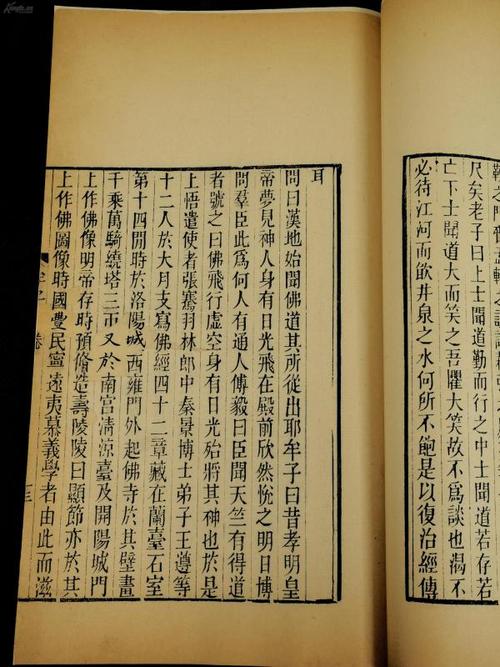 尺矣老子曰上士聞道勤而行之中士聞道若存若
亡下士聞道大而笑之吾懼大笑故不爲談也渴不
必待江河而飲井泉之水何所不飽是以復治經傳
耳
問曰漢地始聞佛道其所從出耶牟子曰昔孝明皇
帝夢見神人身有日光飛在殿前欣然悅之明日博
問羣臣此爲何人有通人傅毅曰臣聞天竺有得道
者號之曰佛飛行虛空身有日光殆將其神也於是
上悟遣使者張騫羽林郎中秦景博士弟子王遵等
十二人於大月支寫佛經四十二章藏在蘭臺石室
第十四閒時於洛陽城西雍門外起佛寺於其壁畫
千乘萬騎繞塔三帀又於南宮清涼臺及開陽城門
上作佛像明帝存時預修造壽陵陵曰顯節亦於其
上作佛圖像時國豐民寧遠夷慕義學者由此而滋